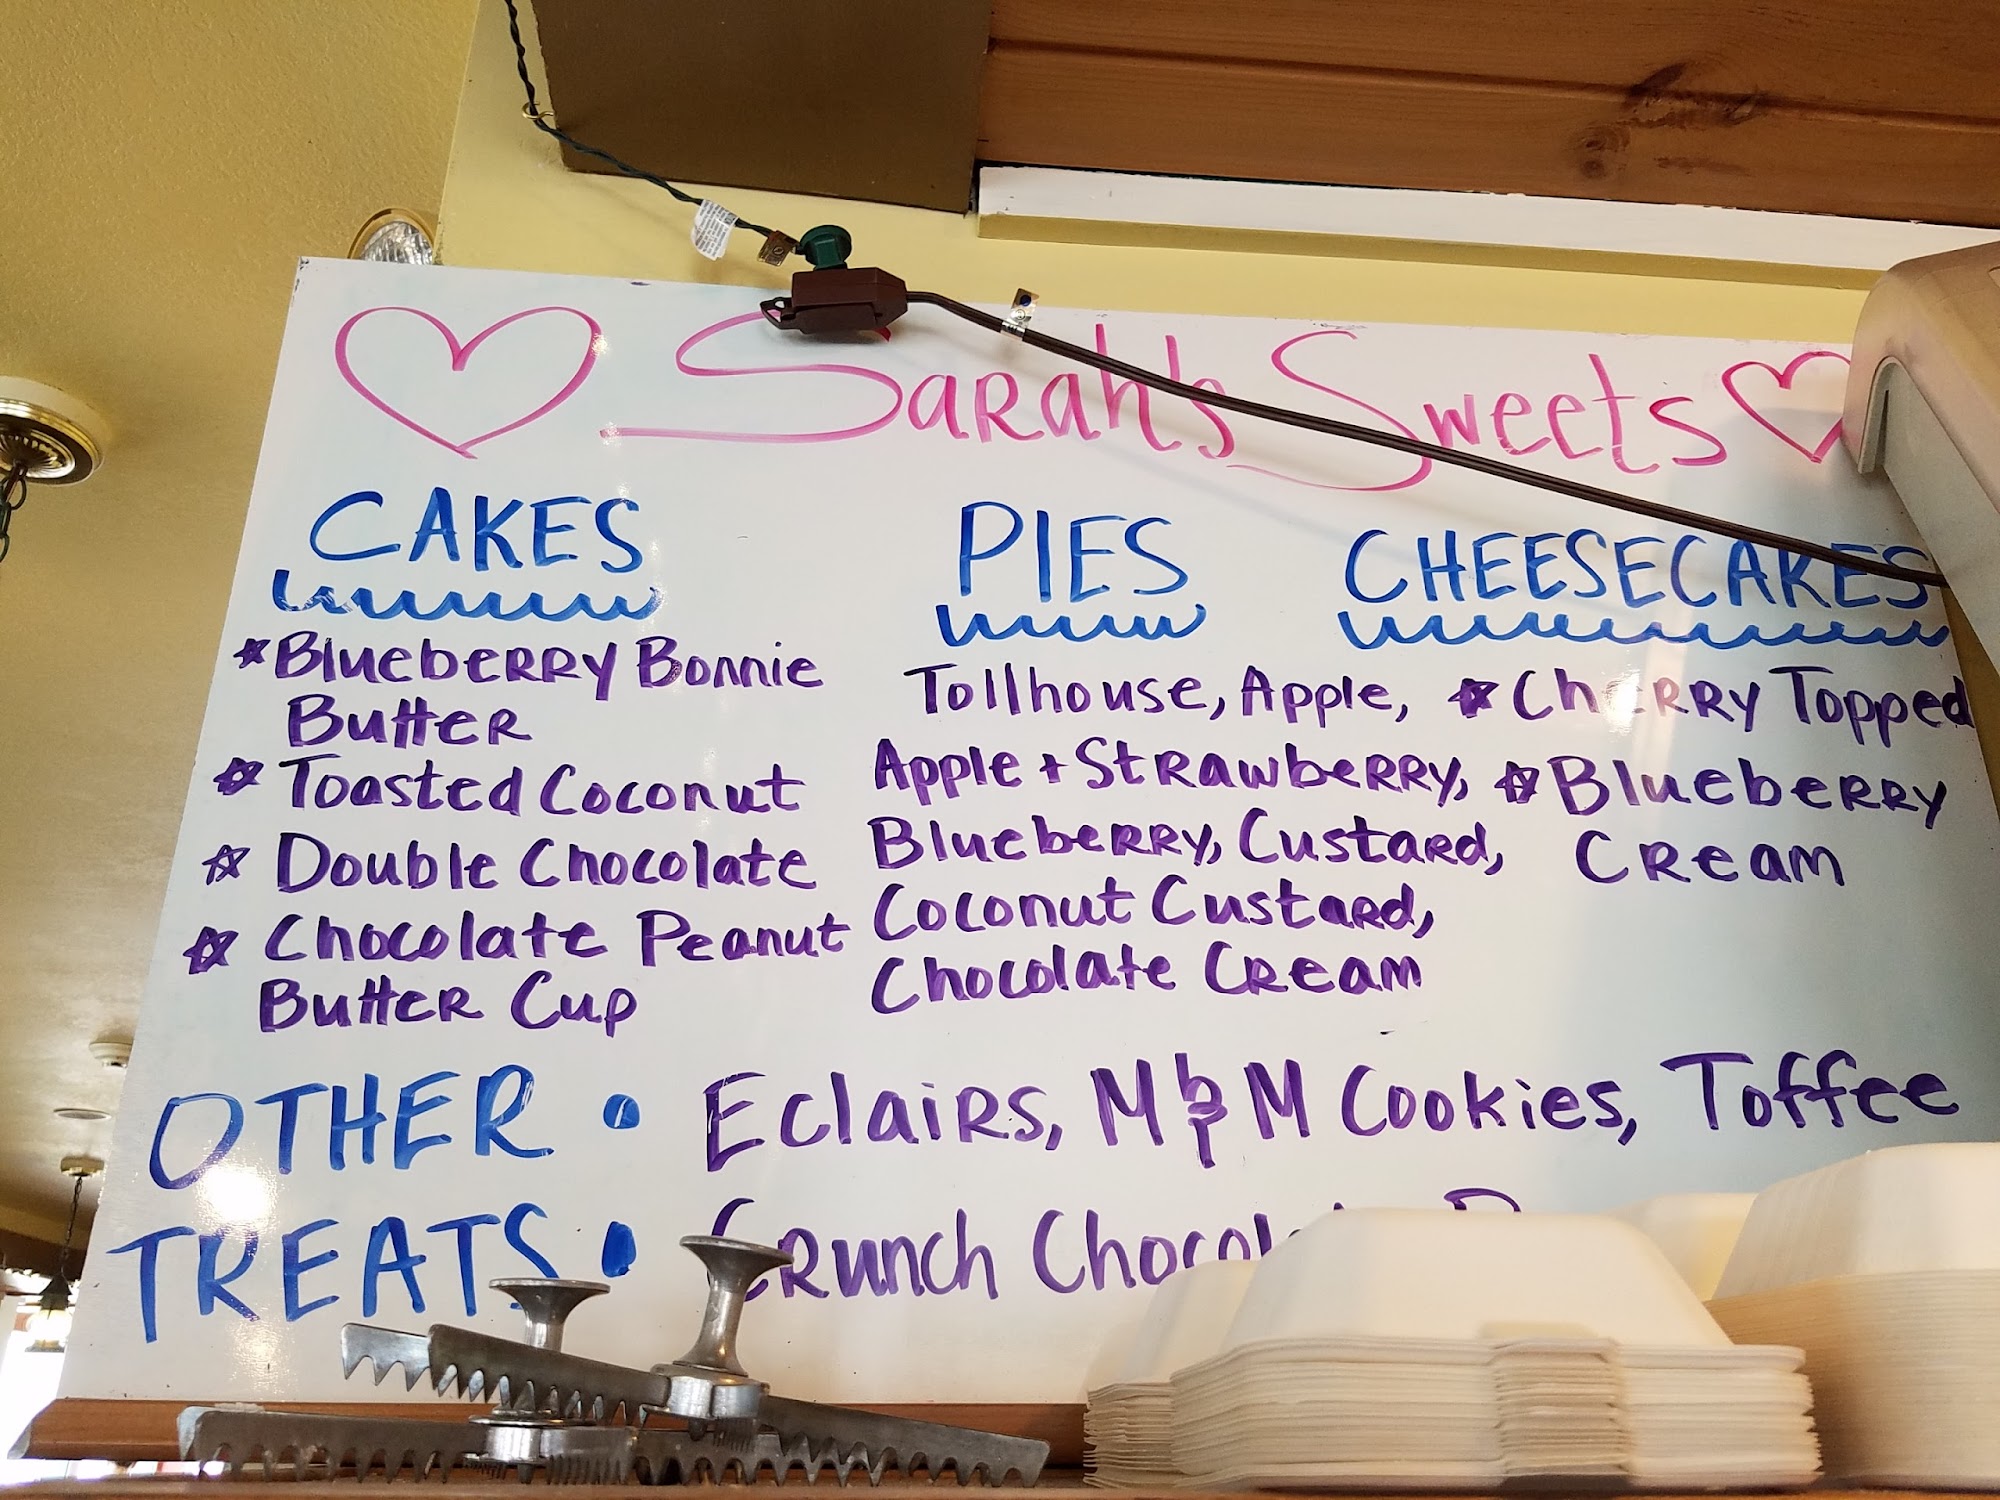 Sarah's Sweets
CAKES
Blueberry Bonnie
Butter
Toasted Coconut
Double Chocolate
Chocolate Peanut
Butter Cup
PIES
Tollhouse, Apple,
Apple + Strawberry,
Blueberry, Custard,
Coconut Custard,
Chocolate Cream
CHEESECAKES
Cherry Topped
Blueberry
Cream
OTHER • Eclairs, M&M Cookies, Toffee
TREATS • Crunch